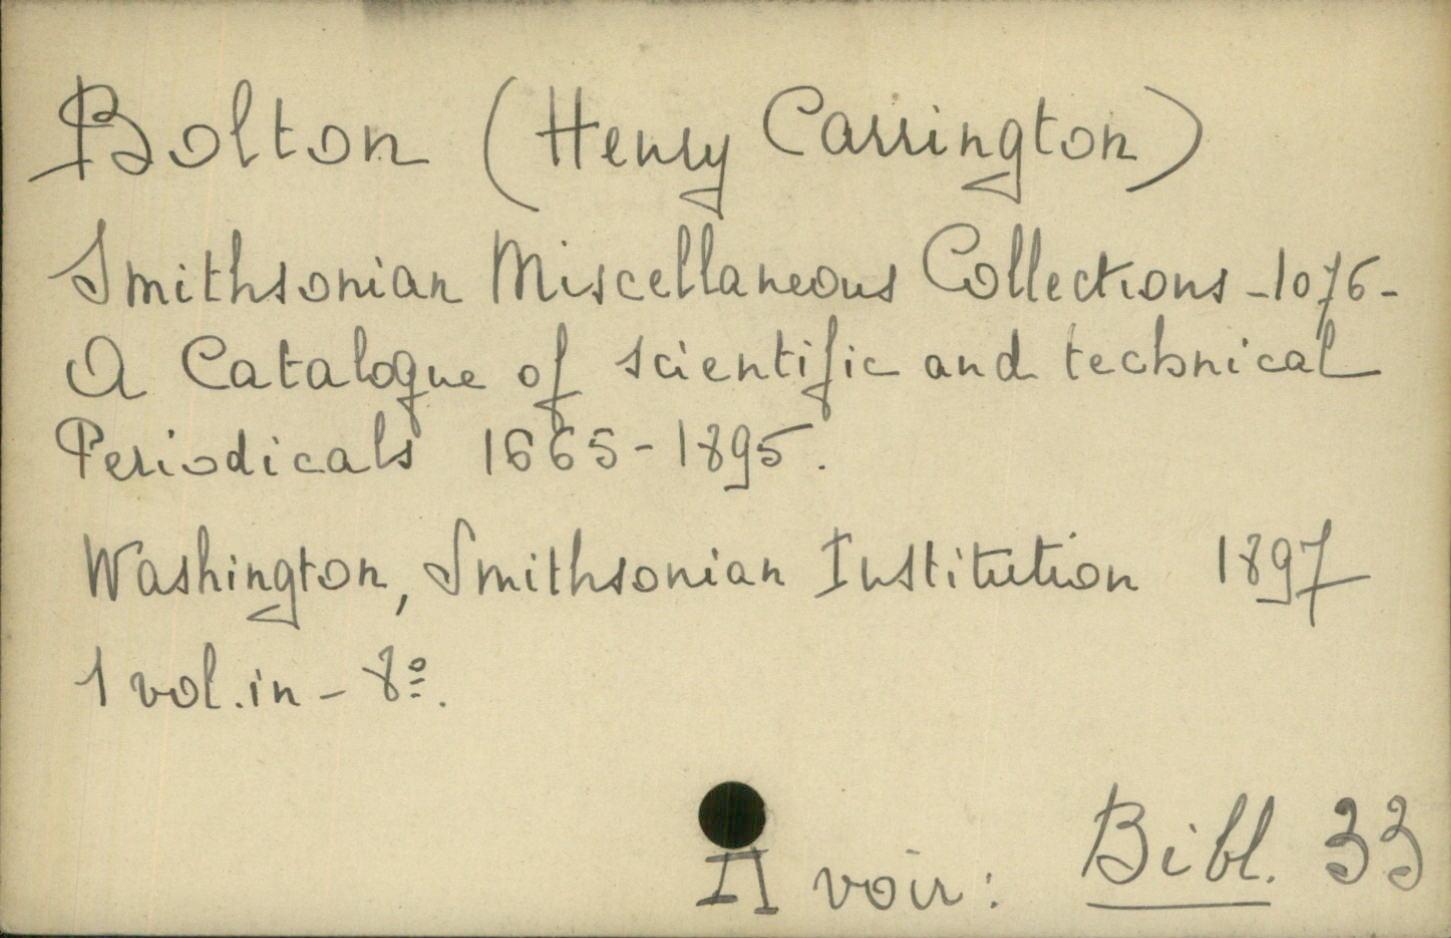 Bolton (Henry Carrington)
Smithsonian Miscellaneous Collections - 1076 -
A Catalogue of scientific and technical
Periodicals 1665-1895.
Washington, Smithsonian Institution 1897
1 vol. in-8º.
A voir: Bibl. 33